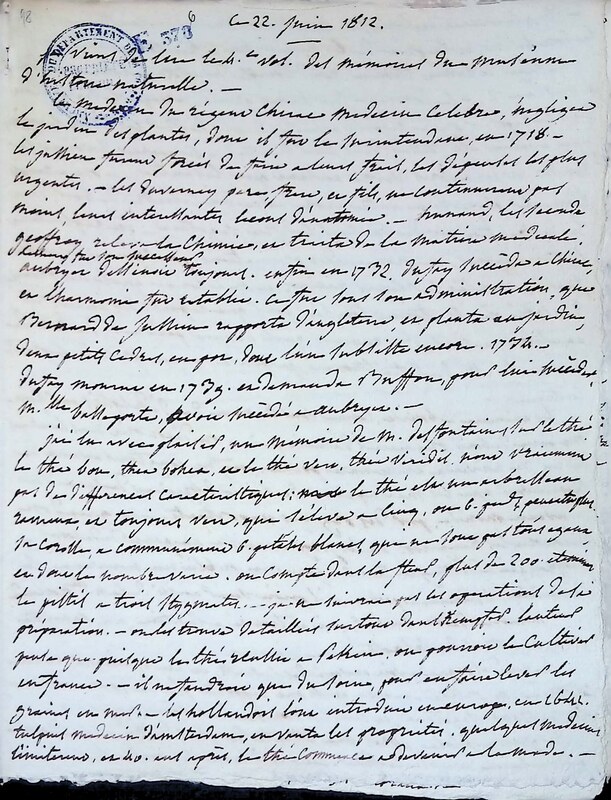 98
6
ce 22. juin 1812.
373
je viens de lire le 4.e vol. des mémoires du muséum
d'histoire naturelle. —
le médecin du régent Chirac médecin célèbre, négligea
le jardin des plantes, dont il fut le surintendant, en 1718 —
les jussieu furent forcés de faire a leurs frais, les dépenses les plus
urgentes. — les duverney pere frere, et fils, ne continuerent pas
moins, leurs interessantes leçons d'anatomie. — les seconds
geoffroy, la Chimie, et traita de la matiere médicale,
fut son successeur
aubriet dessinoit toujours. enfin en 1732. dufay succéda a Chirac,
et l'harmonie fut rétablie. ce fut sous son administration, que
Bernard de Jussieu rapporta d'angleterre, et planta au jardin,
deux petits Cedres, en pot, dont l'un subsiste encore. 1734. —
dufay mourut en 1739. et demanda Buffon, pour lui succéder,
m.lle basseporte, avoit succédé a aubriet. —
j'ai lu avec plaisir, un mémoire de m. desfontaines sur le thé
le thé bou, thea bohea, et le thé vert, thea viridis, n'ont vraiment
pas de differens caracteristiques; le thé est un arbrisseau
rameux, et toujours vert, qui s'élève a cinq, ou 6. pieds,
sa corolle, a communément 6. pétales blancs, qui ne sont pas tous égaux
et dont le nombre varie. on compte dans la fleur, plus de 200. étamines
le pistil a trois stygmates. — je ne suivrai pas les operations de la
préparation. — on les trouve detaillées surtout dans Kempfer. l'auteur
pense que puisque le thé réussit a Pekin, on pourroit le Cultiver
en france. — il ne faudroit que du soin, pour en faire lever les
graines — les hollandois l'ont introduit en europe, en 1641.
tulpius medecin d'amsterdam, en vanta les propriétés. quelques medecins
l'imiterent, et 40. ans après, le thé commença a devenir a la mode. —